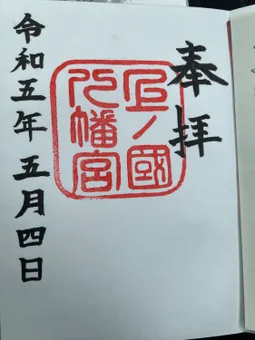 奉拝
ノ國
八幡宮
令和五年五月四日